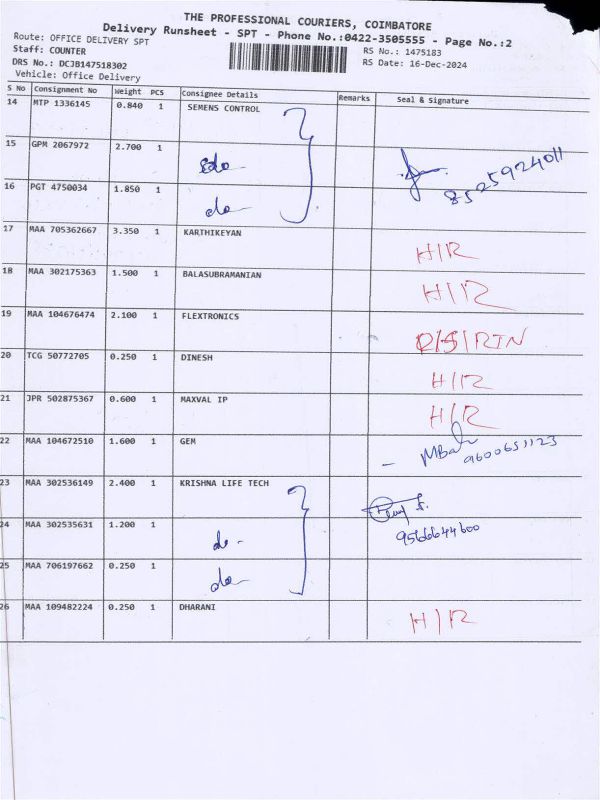 THE PROFESSIONAL COURIERS, COIMBATORE
Delivery Runsheet - SPT - Phone No.:0422-3505555 - Page No.:2
Route: OFFICE DELIVERY SPT
RS No.: 1475183
Staff: COUNTER
RS Date: 16-Dec-2024
DRS No.: DCJB147518302
Vehicle: Office Delivery
S No Consignment No Weight PCS Consignee Details Remarks Seal & Signature
14 MTP 1336145 0.840 1 SEMENS CONTROL
15 GPM 2067972 2.700 1 do
8525924011
16 PGT 4750034 1.850 1 do
17 MAA 705362667 3.350 1 KARTHIKEYAN H/R
18 MAA 302175363 1.500 1 BALASUBRAMANIAN H/R
19 MAA 104676474 2.100 1 FLEXTRONICS R/S/RTN
20 TCG 50772705 0.250 1 DINESH H/R
21 JPR 502875367 0.600 1 MAXVAL IP H/R
22 MAA 104672510 1.600 1 GEM - 9600651123
23 MAA 302536149 2.400 1 KRISHNA LIFE TECH
24 MAA 302535631 1.200 1 do - 9566644600
25 MAA 706197662 0.250 1 do
26 MAA 109482224 0.250 1 DHARANI H/R